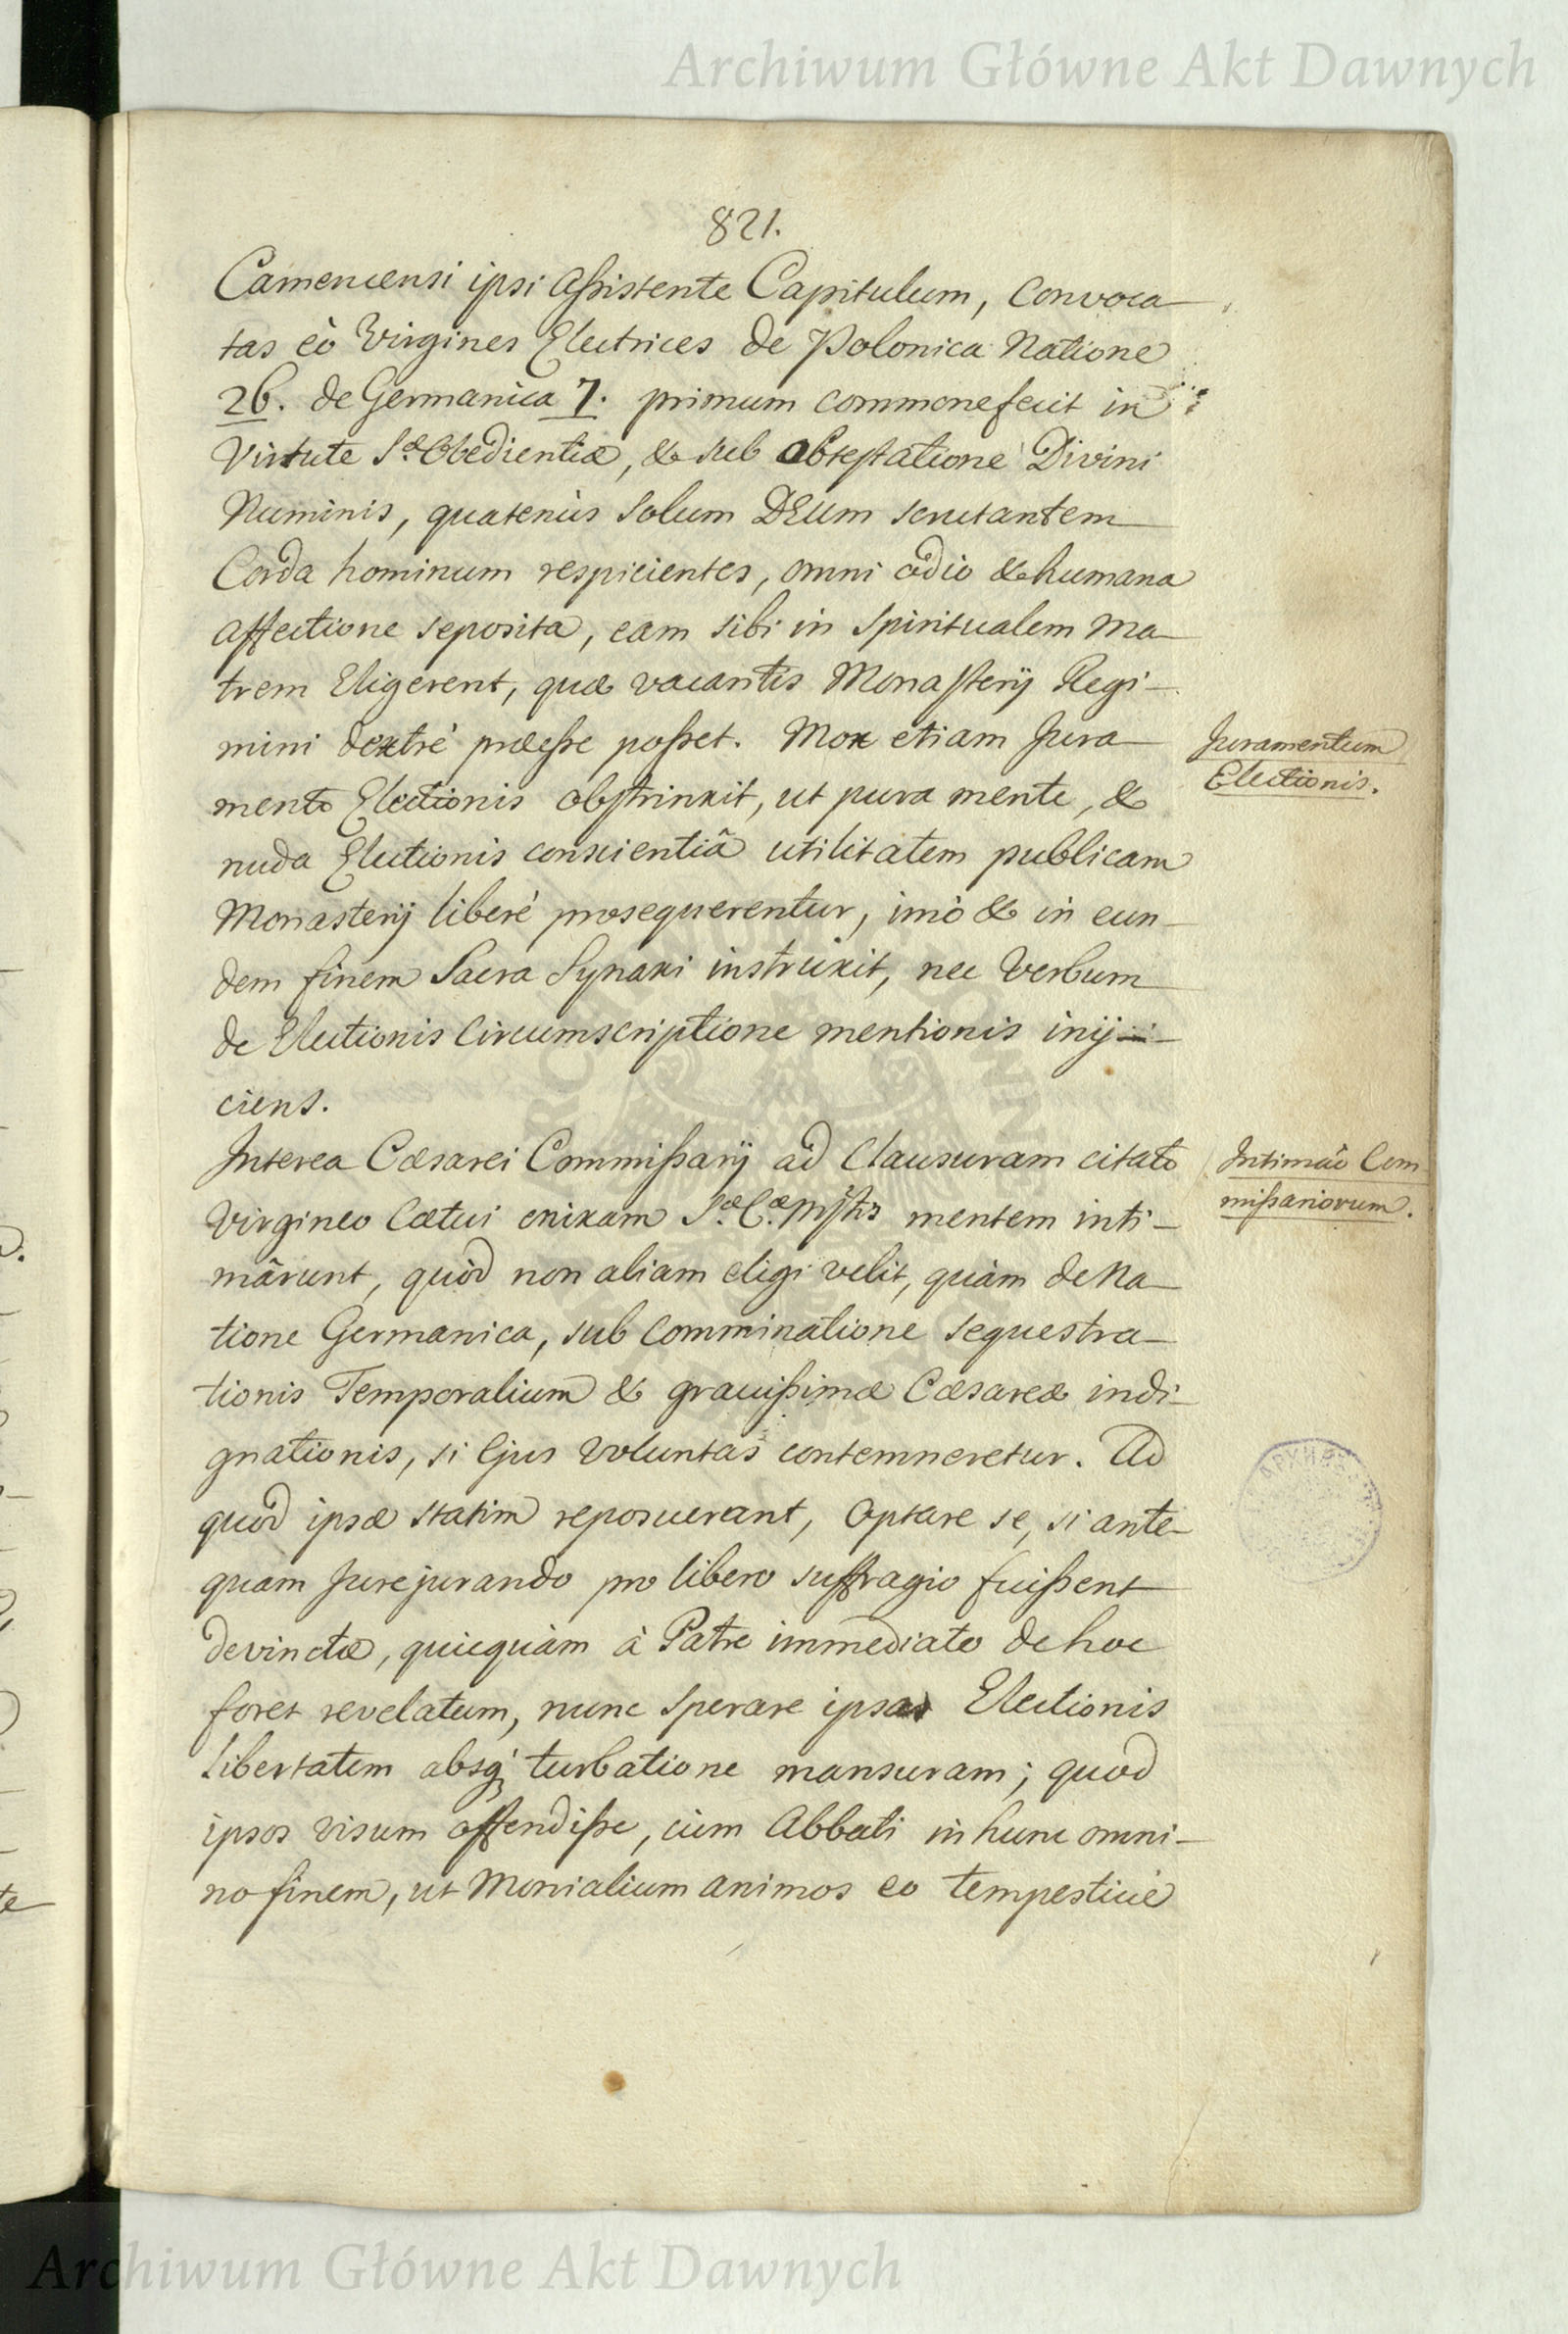 Archiwum Główne Akt Dawnych
821.
Camencensi ipsi assistente Capitulum, Convoca-
tas eò Virgines Electrices de Polonica Natione
26. de Germanica 7. primum commonefecit in
Virtute S.æ Obedientiæ, & sub obtestatione Divini
Numinis, quatenùs Solum DEUm scrutantem
Corda hominum respicientes, omni odio & humana
affectione seposita, eam sibi in Spiritualem Ma-
trem Eligerent, quæ vacantis Monasterij Regi-
mini dextrè præesse posset. Mox etiam Jura-
mento Electionis obstrinxit, ut pura mente, &
nuda Electionis conscientiâ utilitatem publicam
Monasterij liberè prosequerentur, imò & in eun-
dem finem Sacra Synaxi instruxit, nec Verbum
de Electionis Circumscriptione mentionis inij-
ciens.
Juramentum
Electionis.
Interea Cæsarei Commissarij ad Clausuram citato
Virgineo Cœtui enixam S.æ C.æ Mjstis mentem inti-
mârunt, quòd non aliam eligi velit, quàm de Na-
tione Germanica, sub Comminatione sequestra-
tionis Temporalium & gravissimæ Cæsareæ indi-
gnationis, si Ejus Voluntas contemneretur. Ad
quod ipsæ statim reposuerant, Optare se, si ante-
quam Jurejurando pro libero suffragio fuissent
devinctæ, quicquàm à Patre immediato de hoc
foret revelatum, nunc Sperare ipsas Electionis
Libertatem absq; turbatione mansuram; quod
ipsos visum offendisse, cùm Abbati in hunc omni-
no finem, ut Monialium animos eo tempestivè
Intimâo Com-
missariorum.
Archiwum Główne Akt Dawnych